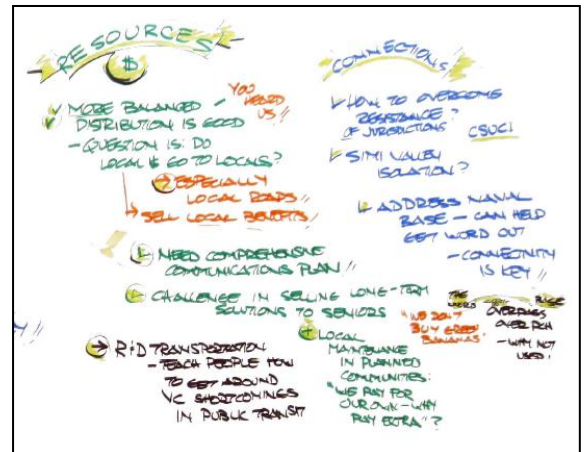 RESOURCES
$
MORE BALANCED
DISTRIBUTION IS GOOD
- QUESTION IS: DO
LOCAL $ GO TO LOCALS?
YOU
HEARD
US!!
ESPECIALLY
LOCAL ROADS
SELL LOCAL BENEFITS
NEED COMPREHENSIVE
COMMUNICATIONS PLAN
CHALLENGE IN SELLING LONG-TERM
SOLUTIONS TO SENIORS
"WE DON'T
BUY GREEN
BANANAS"
R+D TRANSPORTATION
- TEACH PEOPLE HOW
TO GET AROUND
VC SHORTCOMINGS
IN PUBLIC TRANSIT
LOCAL
MAINTENANCE
IN PLANNED
COMMUNITIES:
"WE PAY FOR
OUR OWN - WHY
PAY EXTRA"?
CONNECTIONS
HOW TO OVERCOME
RESISTANCE?
OF JURISDICTIONS
CSUCI
SIMI VALLEY
ISOLATION?
ADDRESS NAVAL
BASE - CAN HELP
GET WORD OUT
- CONNECTIVITY
IS KEY
THE
BRIDGE
OVERPASS
OVER PCH
- WHY NOT
USED?